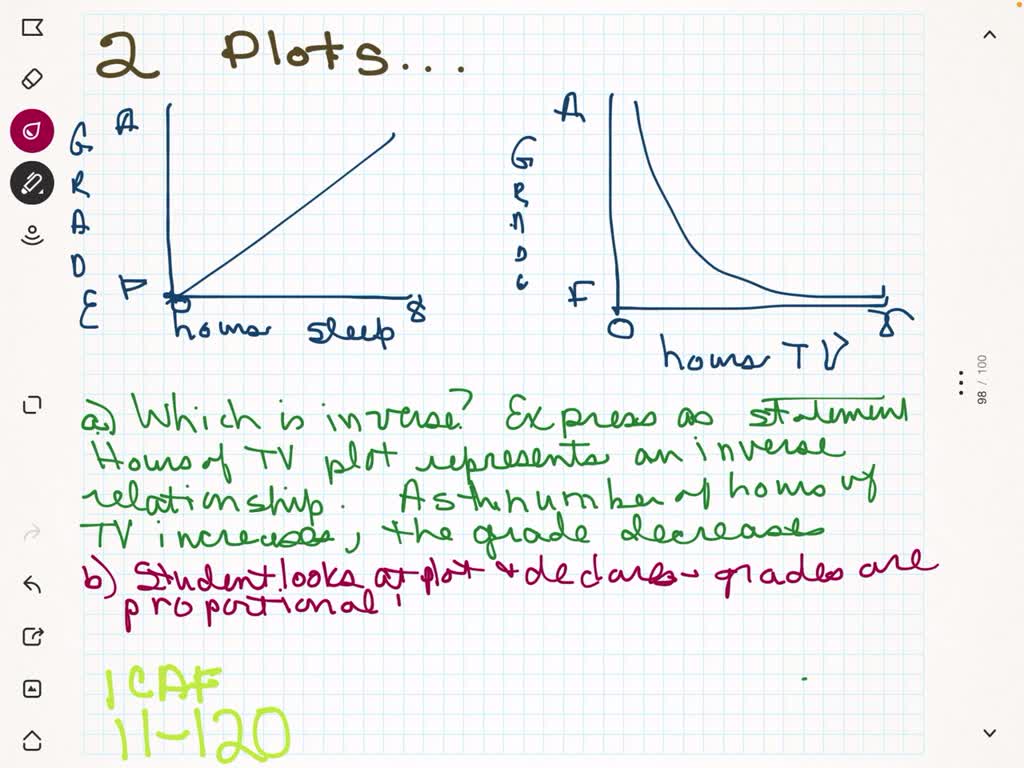 2 Plots...
A
GRADE
F
0
8
hours sleep
A
GRADE
F
0
8
hours TV
a) Which is inverse? Express as statement
Hours of TV plot represents an inverse
relationship. As the number of hours of
TV increases, the grade decreases
b) Student looks at plot & declares - grades are
proportional!
1CAF
11-120
98 / 100